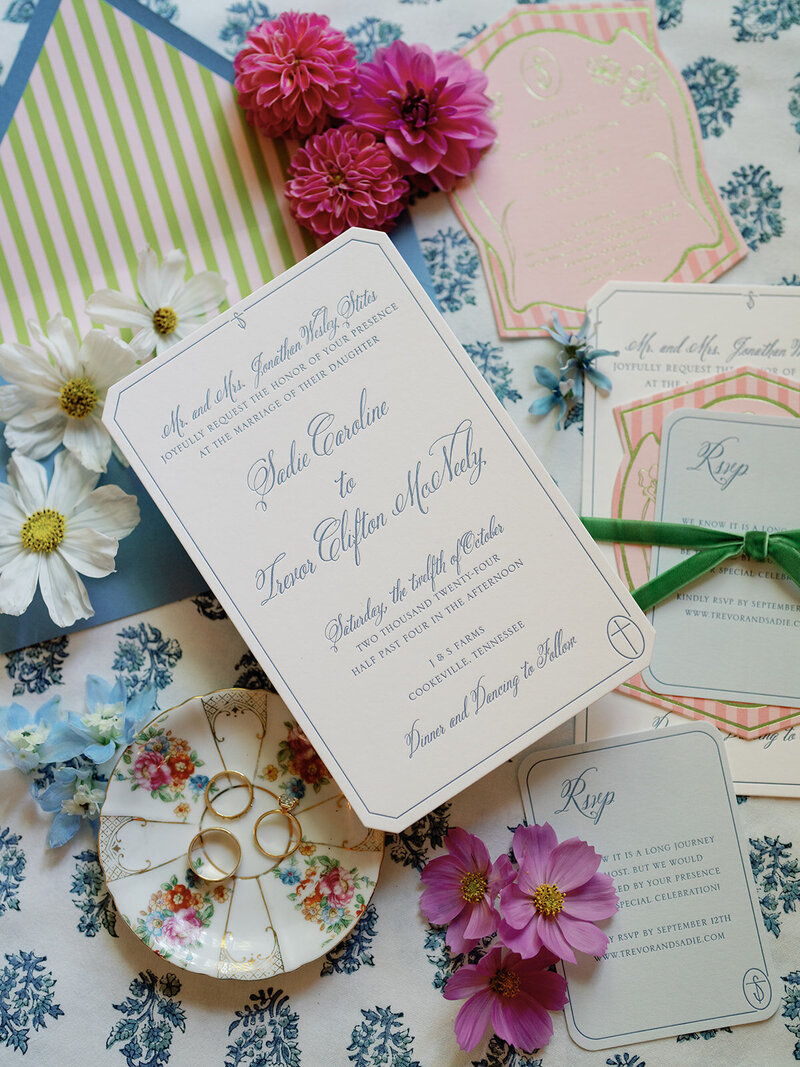 Mr. and Mrs. Jonathan Wesley Stites
JOYFULLY REQUEST THE HONOR OF YOUR PRESENCE
AT THE MARRIAGE OF THEIR DAUGHTER
Sadie Caroline
to
Trevor Clifton McNeely
Saturday, the twelfth of October
TWO THOUSAND TWENTY-FOUR
HALF PAST FOUR IN THE AFTERNOON
J & S FARMS
COOKEVILLE, TENNESSEE
Dinner and Dancing to Follow
Mr. and Mrs. Jonathan We
JOYFULLY REQUEST THE HONOR OF
AT THE MARRIAGE OF
Rsvp
WE KNOW IT IS A LONG
BE
SPECIAL CELEBRATION!
KINDLY RSVP BY SEPTEMBER
WWW.TREVORANDSADIE.C
Dinner and Dancing to
Rsvp
OW IT IS A LONG JOURNEY
MOST, BUT WE WOULD
ED BY YOUR PRESENCE
SPECIAL CELEBRATION!
Y RSVP BY SEPTEMBER 12TH
WWW.TREVORANDSADIE.COM